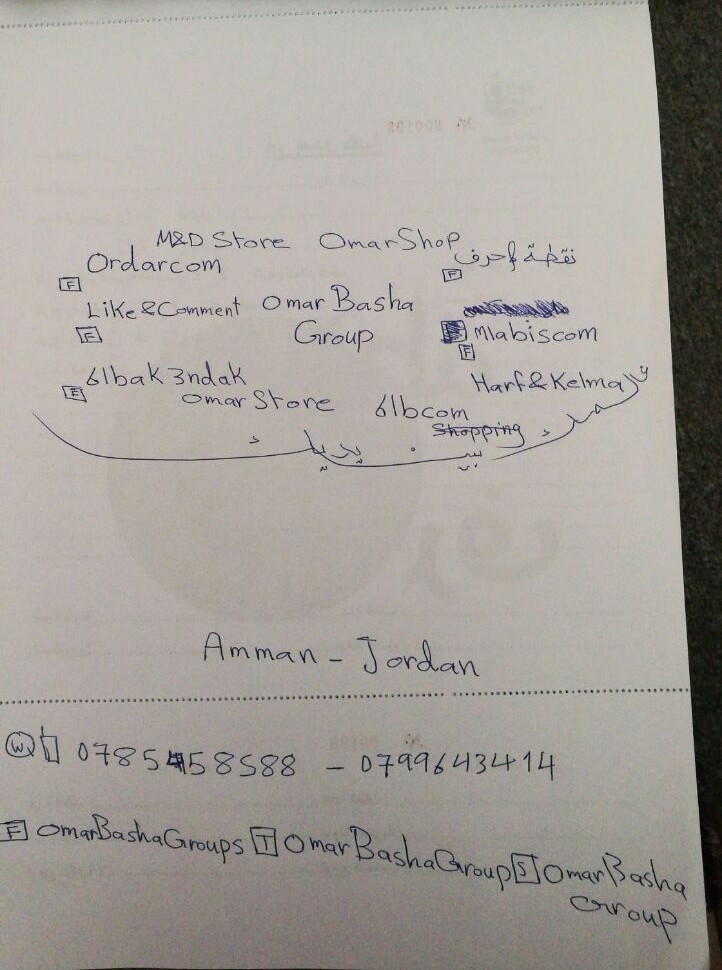 M&D Store OmarShop
Ordarcom نقطة و حرف
F F
Like&Comment Omar Basha
F Group F Mlabiscom
F
6lbak 3ndak Harf&Kelma
F Omar Store 6lbcom
Shopping
Amman - Jordan
W 0785458588 - 0799643414
F OmarBashaGroups T OmarBashaGroup S OmarBasha
Group